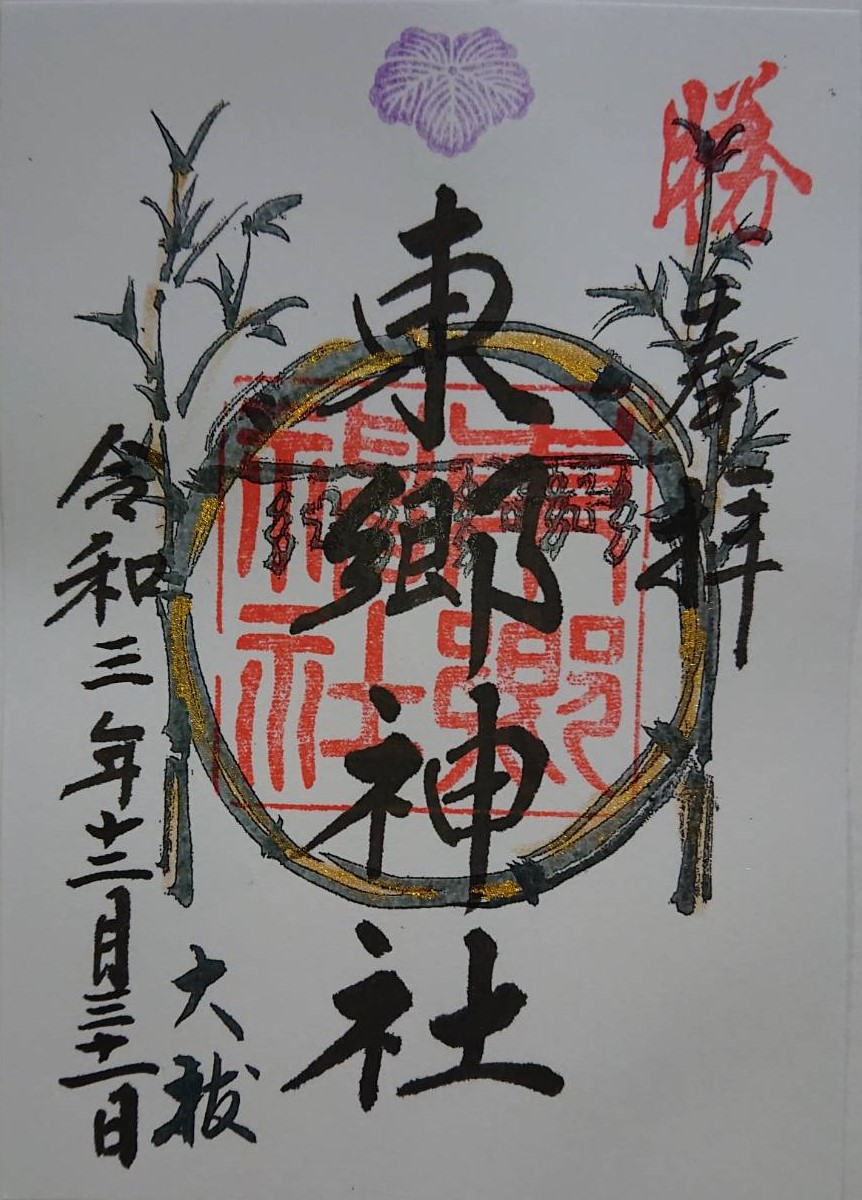 勝
奉拝
東郷神社
東郷神社
大祓
令和三年十二月三十一日